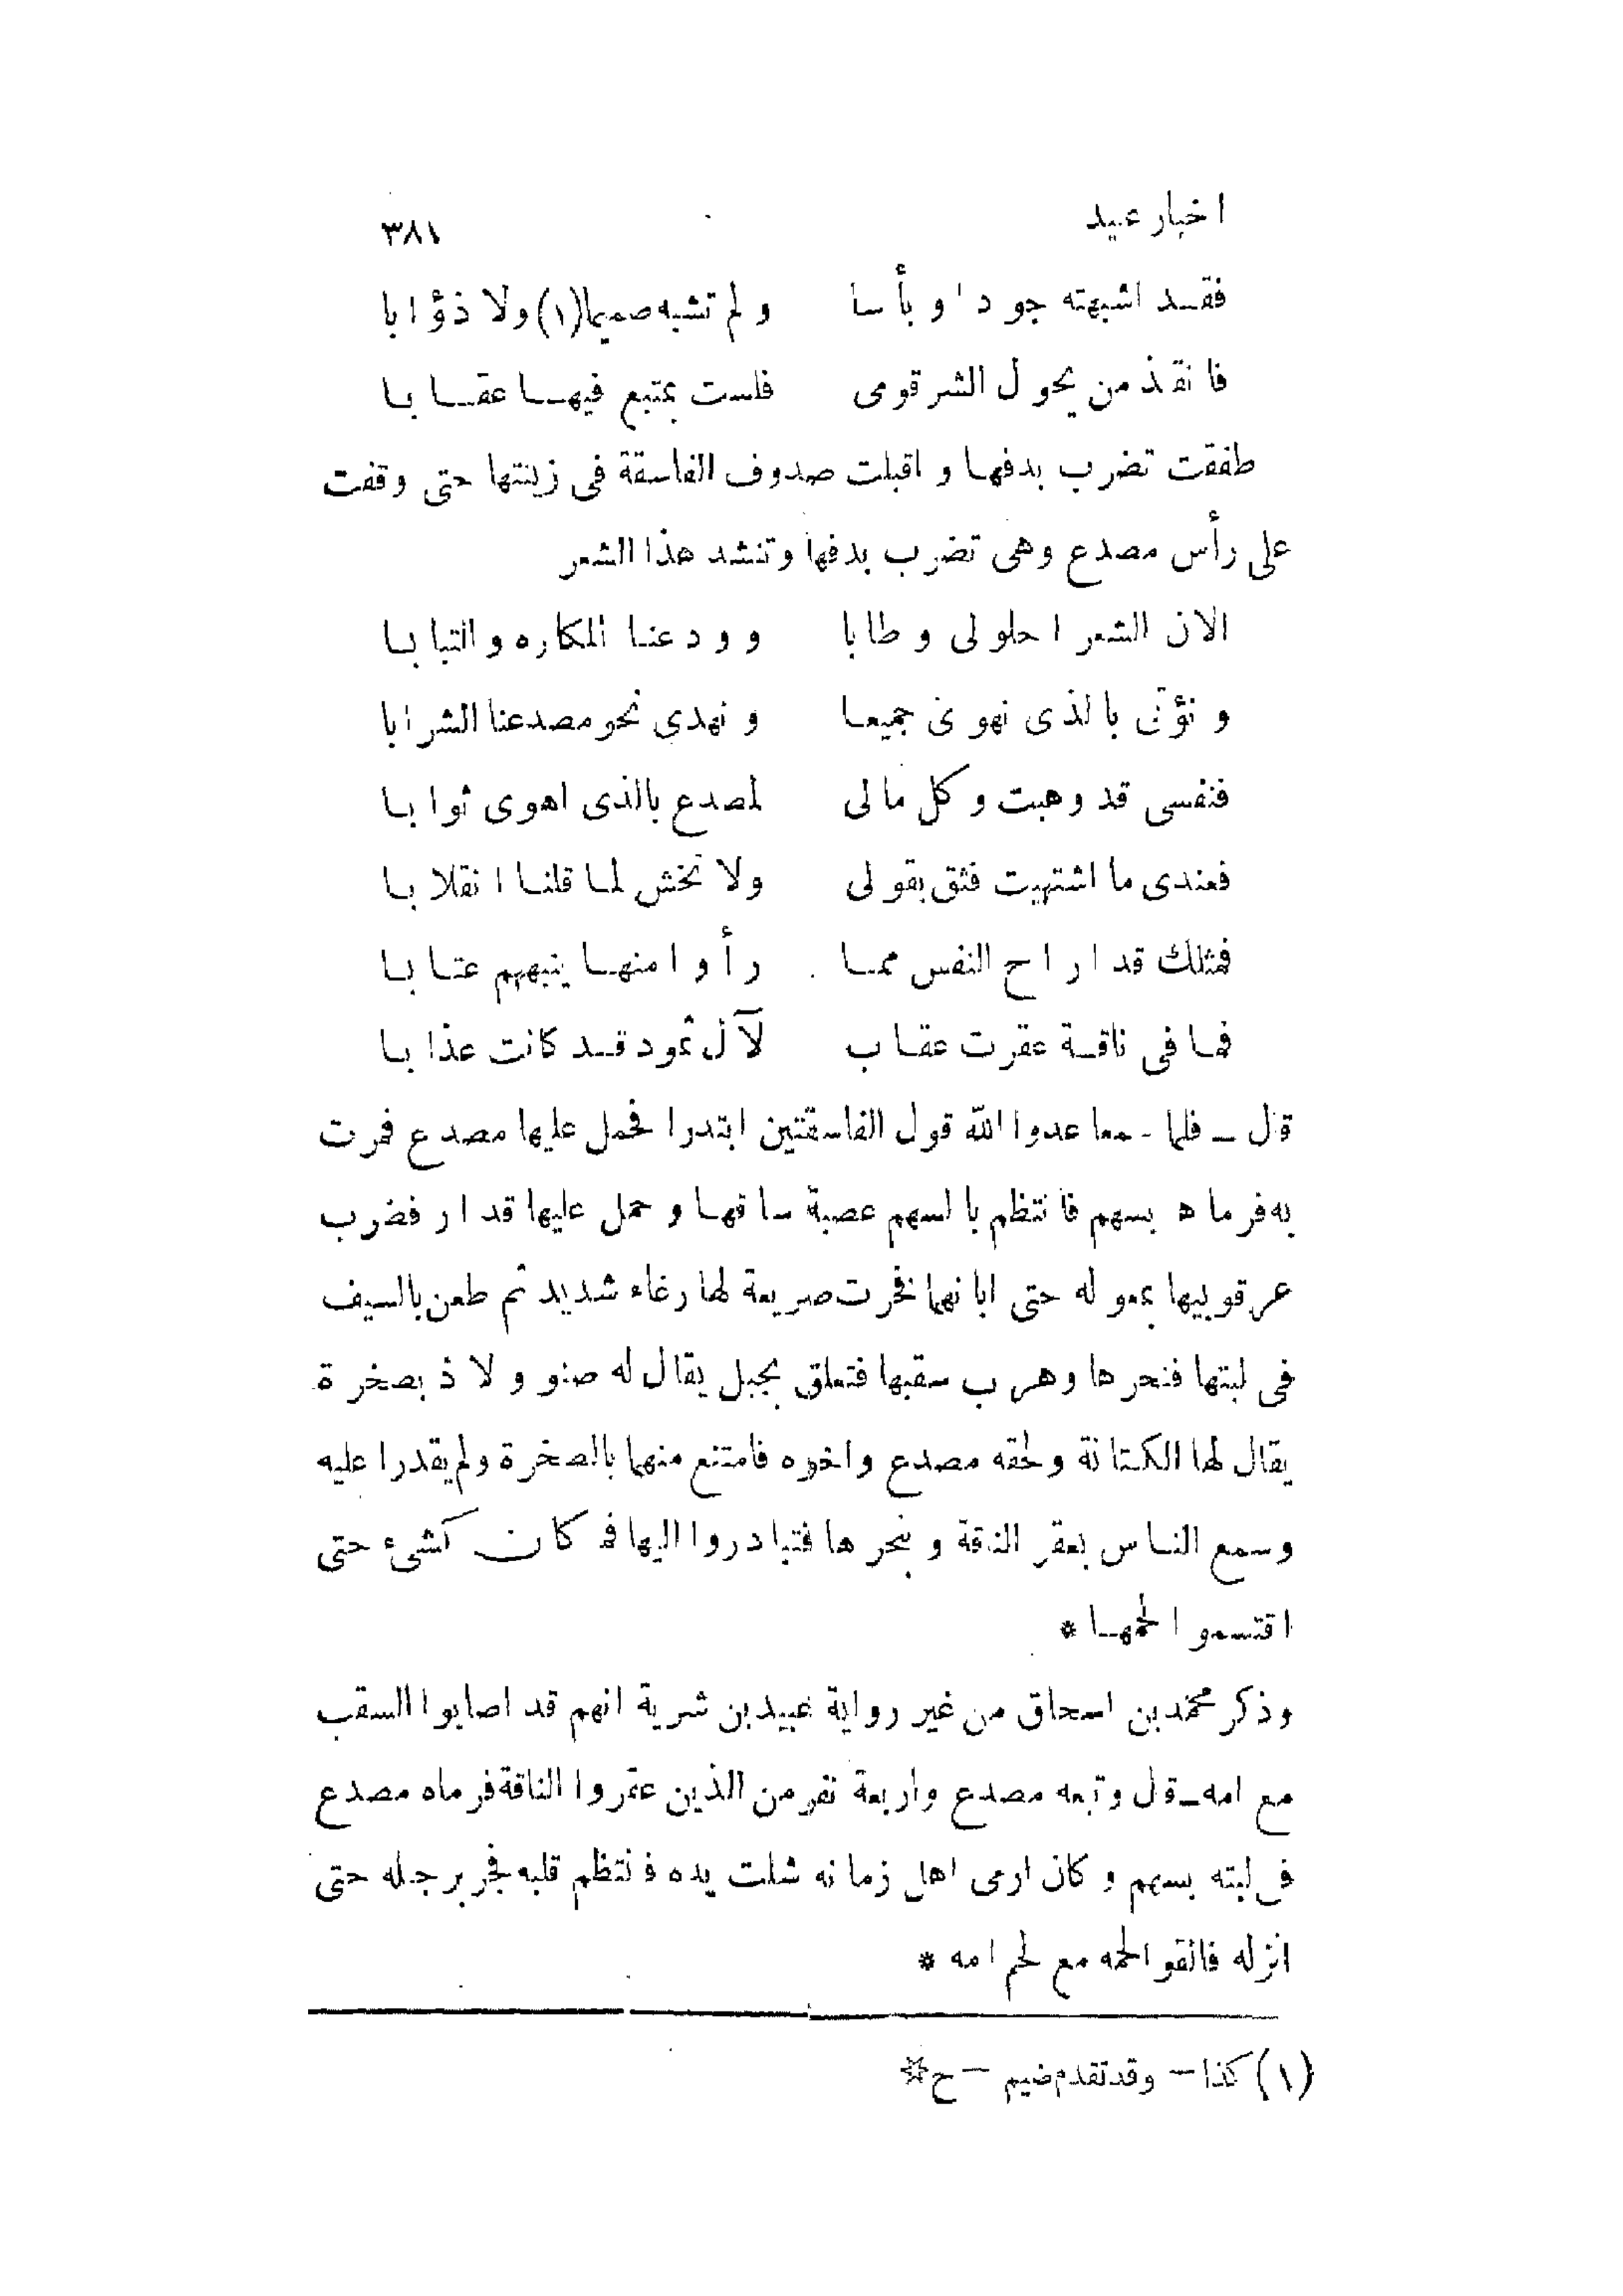 اخبار عبيد ٣٨١
فقد اشبهته جودا وبأسا ولم تشبه صميما(١) ولا ذؤابا
فانقذ من يحول الشر قومى فلست بمتبع فيها عقابا
طفقت تضرب بدفها واقبلت صدوف الفاسقة فى زينتها حتى وقفت
على رأس مصدع وهى تضرب بدفها وتنشد هذا الشعر
الان الشعر احلولى وطابا وودعنا المكاره والتبابا
ونؤتى بالذى نهوى جميعا ونهدى نحو مصدعنا الشرابا
فنفسى قد وهبت وكل مالى لمصدع بالذى اهوى ثوابا
فعندى ما اشتهيت فثق بقولى ولا تخش لما قلنا انقلابا
فمثلك قد اراح النفس مما رأوا منها ينبههم عتابا
فما فى ناقة عقرت عقاب لآل ثمود قد كانت عذابا
قال ـ فلما سمعا عدوا الله قول الفاسقتين ابتدرا فحمل عليها مصدع فمرت
به فرماه بسهم فانتظم بالسهم عصبة ساقها وحمل عليها قدار فضرب
عرقوبيها بمعوله حتى ابانهما فخرت صريعة لها رغاء شديد ثم طعن بالسيف
فى لبتها فنحرها وهرب سقبها فتعلق بجبل يقال له صنو ولاذ بصخرة
يقال لها الكتانة ولحقه مصدع واخوه فامتنع منهما بالصخرة ولم يقدرا عليه
وسمع الناس بعقر الناقة ونحرها فتبادروا اليها فما كان كشىء حتى
اقتسموا لحمها *
وذكر محمد بن اسحاق من غير رواية عبيد بن شرية انهم قد اصابوا السقب
مع امه ـ قال وتبعه مصدع واربعة نفر من الذين عقروا الناقة فرماه مصدع
فى لبته بسهم وكان ارمى اهل زمانه شلت يده فانتظم قلبه فجر برجله حتى
انزله فالقوا لحمه مع لحم امه *
(١) كذا ـ وقد تقدم ضيم ـ ح *